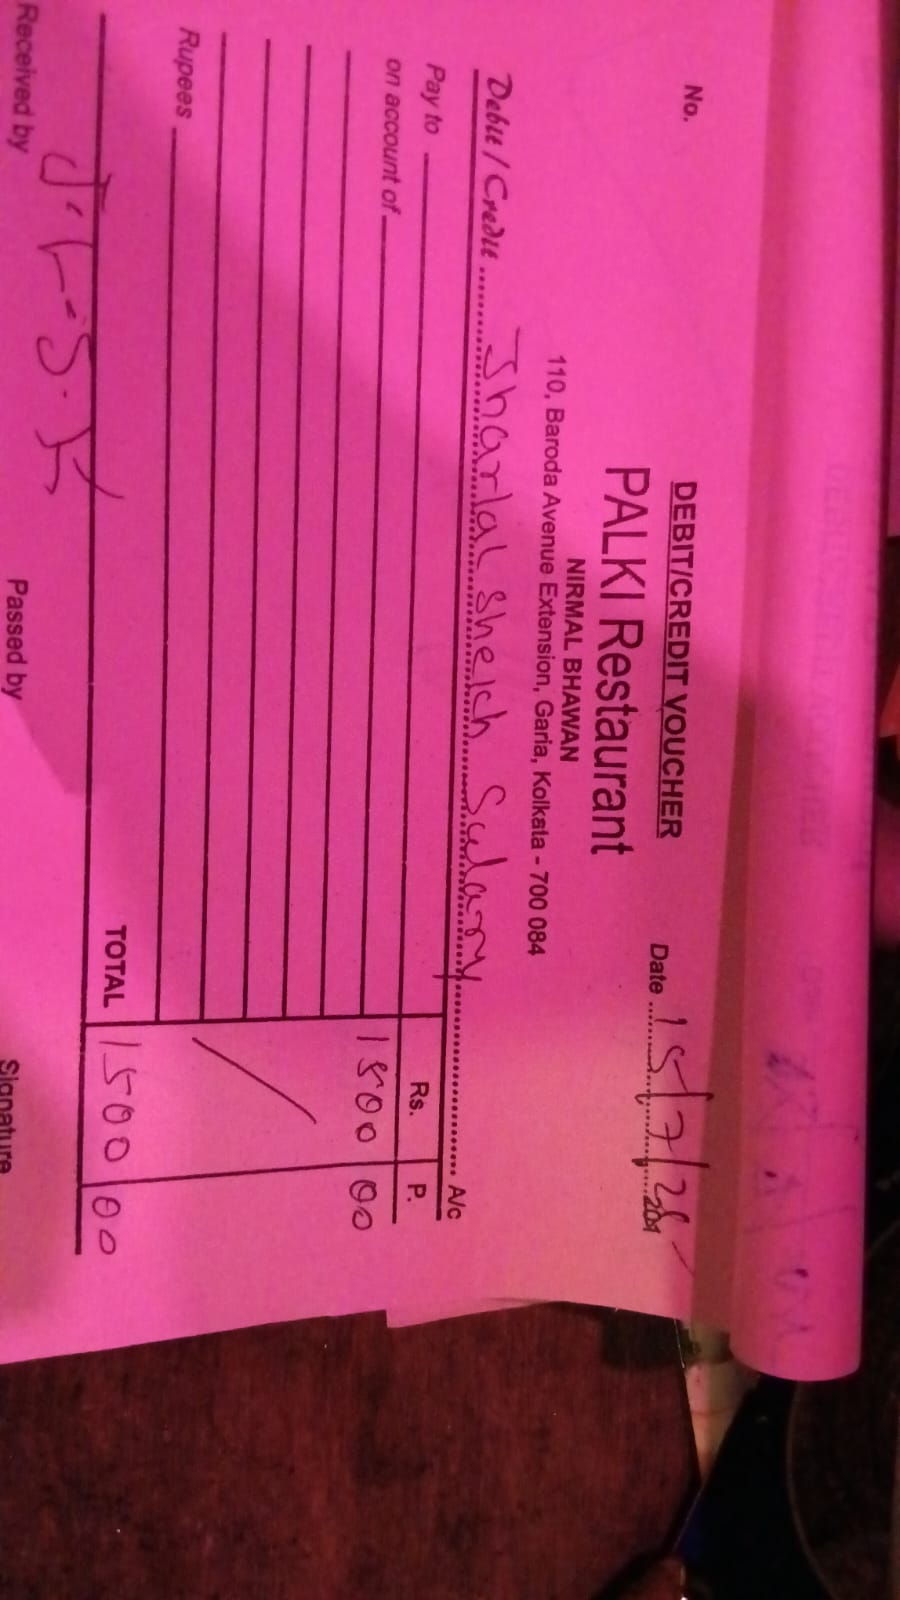 DEBIT/CREDIT VOUCHER
No.
Date 15/7/25 201
PALKI Restaurant
NIRMAL BHAWAN
110, Baroda Avenue Extension, Garia, Kolkata - 700 084
Debit / Credit Sharlal sheich Sulary A/c
Pay to
Rs. P.
on account of
1500 00
Rupees
TOTAL 1500 00
Received by
Passed by
Signature